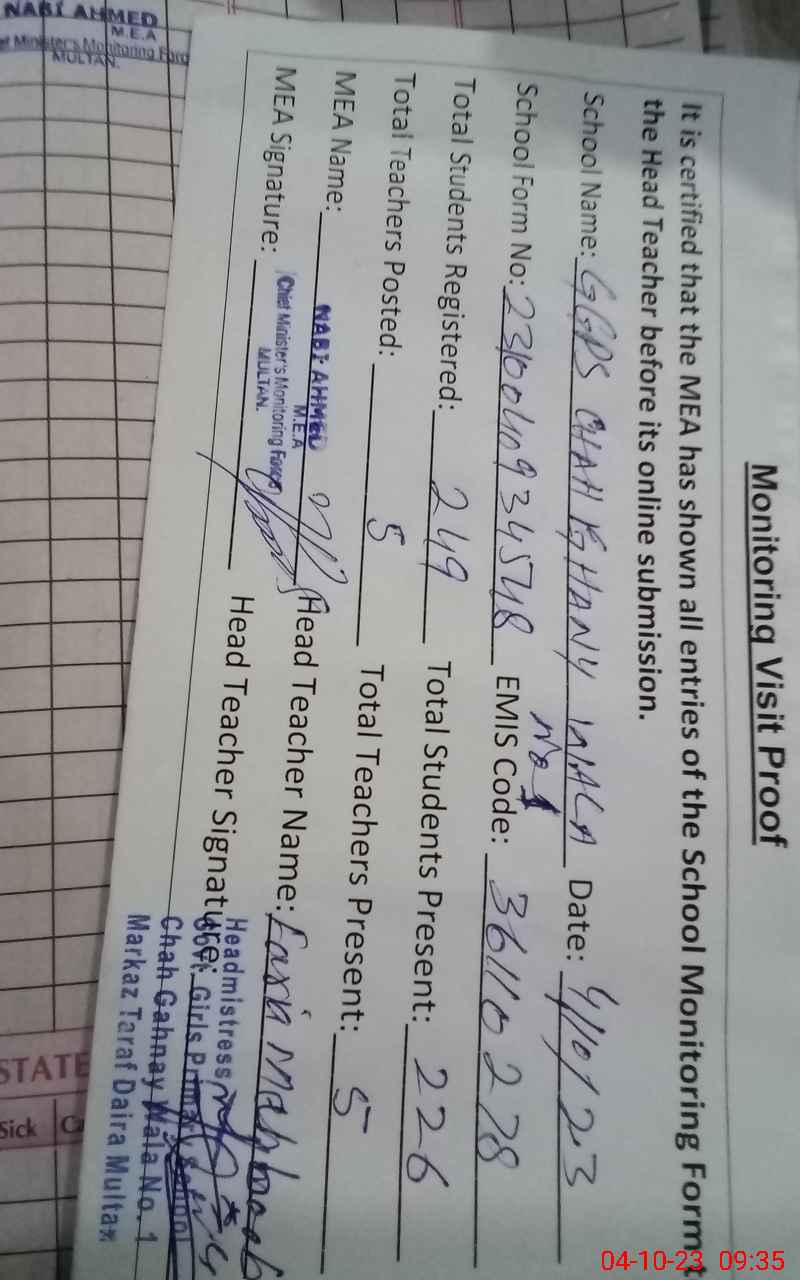 Monitoring Visit Proof
It is certified that the MEA has shown all entries of the School Monitoring Form t
the Head Teacher before its online submission.
School Name: GGPS CHAH GHANY WALA No 1 Date: 4/10/23
School Form No: EMIS Code: 36110278
Total Students Registered: 249 Total Students Present: 226
Total Teachers Posted: 5 Total Teachers Present: 5
MEA Name: NABI AHMED Head Teacher Name: Mahboob
M.E.A
Chief Minister's Monitoring Force
MULTAN.
MEA Signature: Head Teacher Signature:
Headmistress
Govt. Girls Primary School
Chah Gahnay Wala No. 1
Markaz Taraf Daira Multan
NABI AHMED
M.E.A
ef Minister's Monitoring Forc
MULTAN.
STATE
Sick Ca
04-10-23 09:35